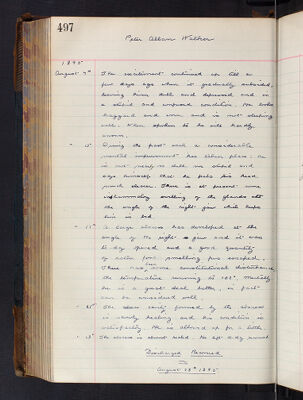 497
Peter Allan Walker
1895
August 3rd The excitement continued up till a
few days ago when it gradually subsided,
leaving him dull and depressed and in
a stupid and confused condition. He looks
haggard and worn and is not sleeping
well. When spoken to he will hardly
answer.
" During the past week a considerable
mental improvement has taken place. He
is not nearly so dull or stupid and
says himself that he feels his head
much clearer. There is at present some
inflammatory swelling of the glands at
the angle of the right jaw which keeps
him in bed.
" A large abscess has developed at the
angle of the right jaw and it was
to-day opened and a good quantity
of rather foul smelling pus escaped.
There has been some constitutional disturbance
the temperature running to 102°. Mentally
he is a great deal better, in fact
can be considered well.
" The abscess cavity formed by the abscess
is slowly healing and his condition is
satisfactory. He is allowed up for a little.
" The abscess is almost healed. He left to-day
Discharged Recovered
August 28th 1895